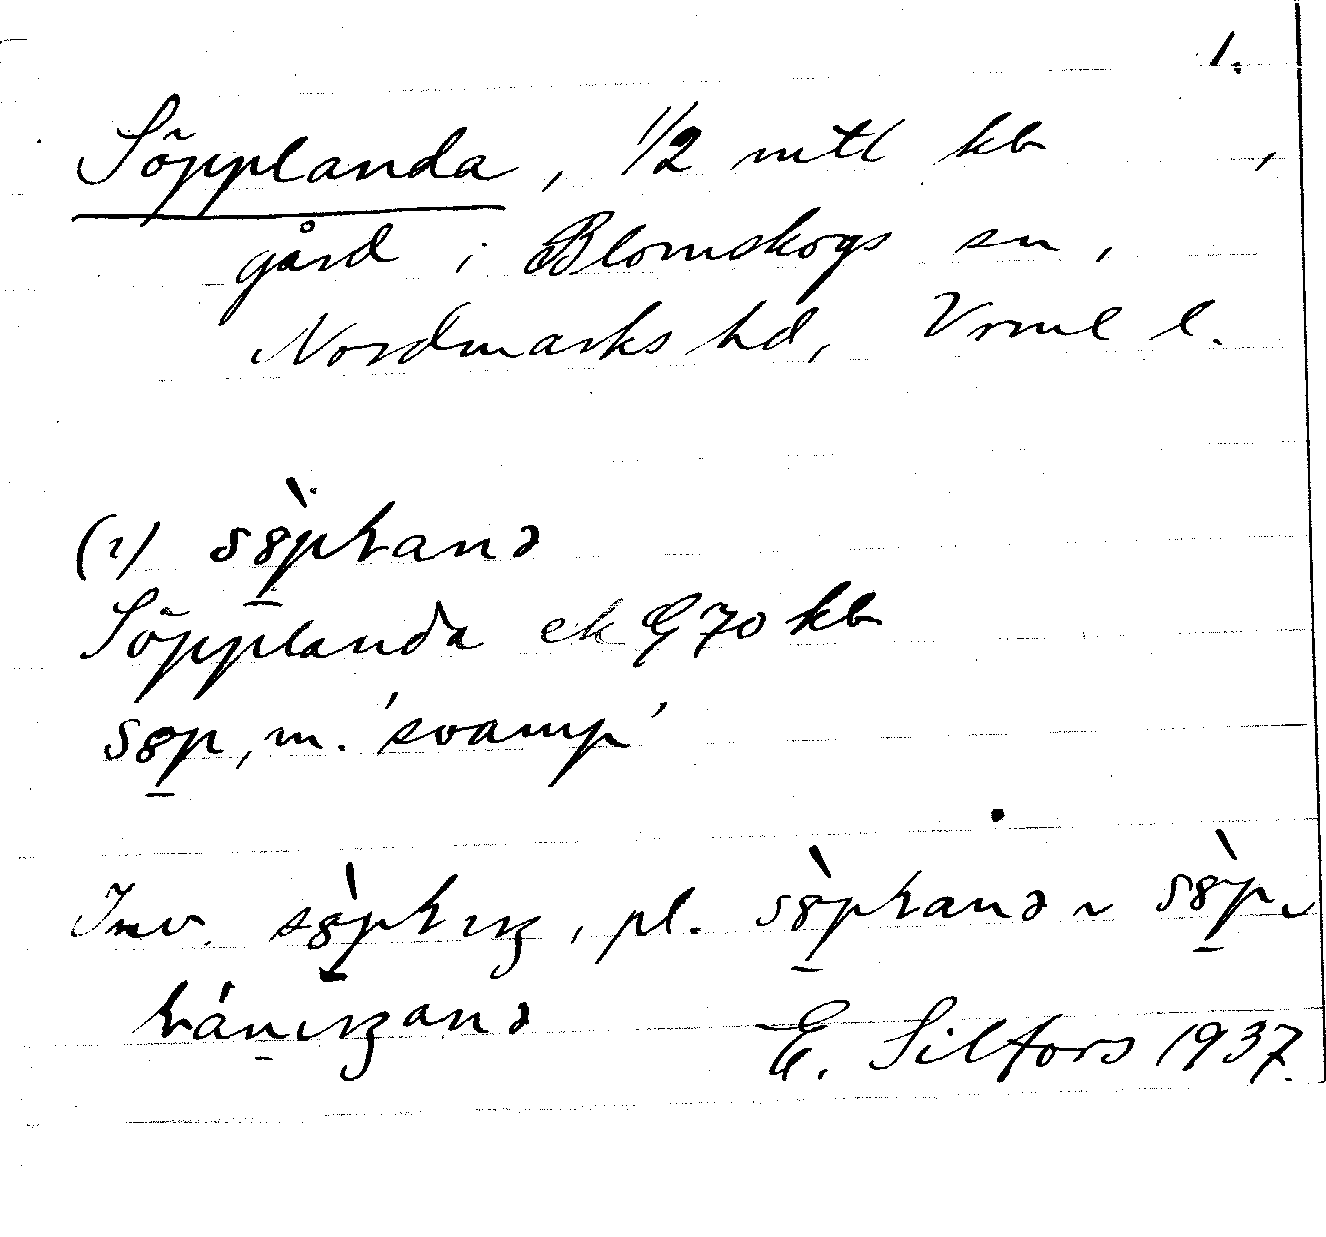 1.
Söpplanda, 1/2 mtl kb ,
gård i Blomskogs sn,
Nordmarks hd, Vrml l.
(i) sö̀pɫanə
Söpplanda ek G 70 kb
söp, m. 'svamp'
Inv. sö̀pɫıŋ, pl. sö̀pɫanə ~ sö̀p-
ɫánıŋanə
E. Silfors 1937.